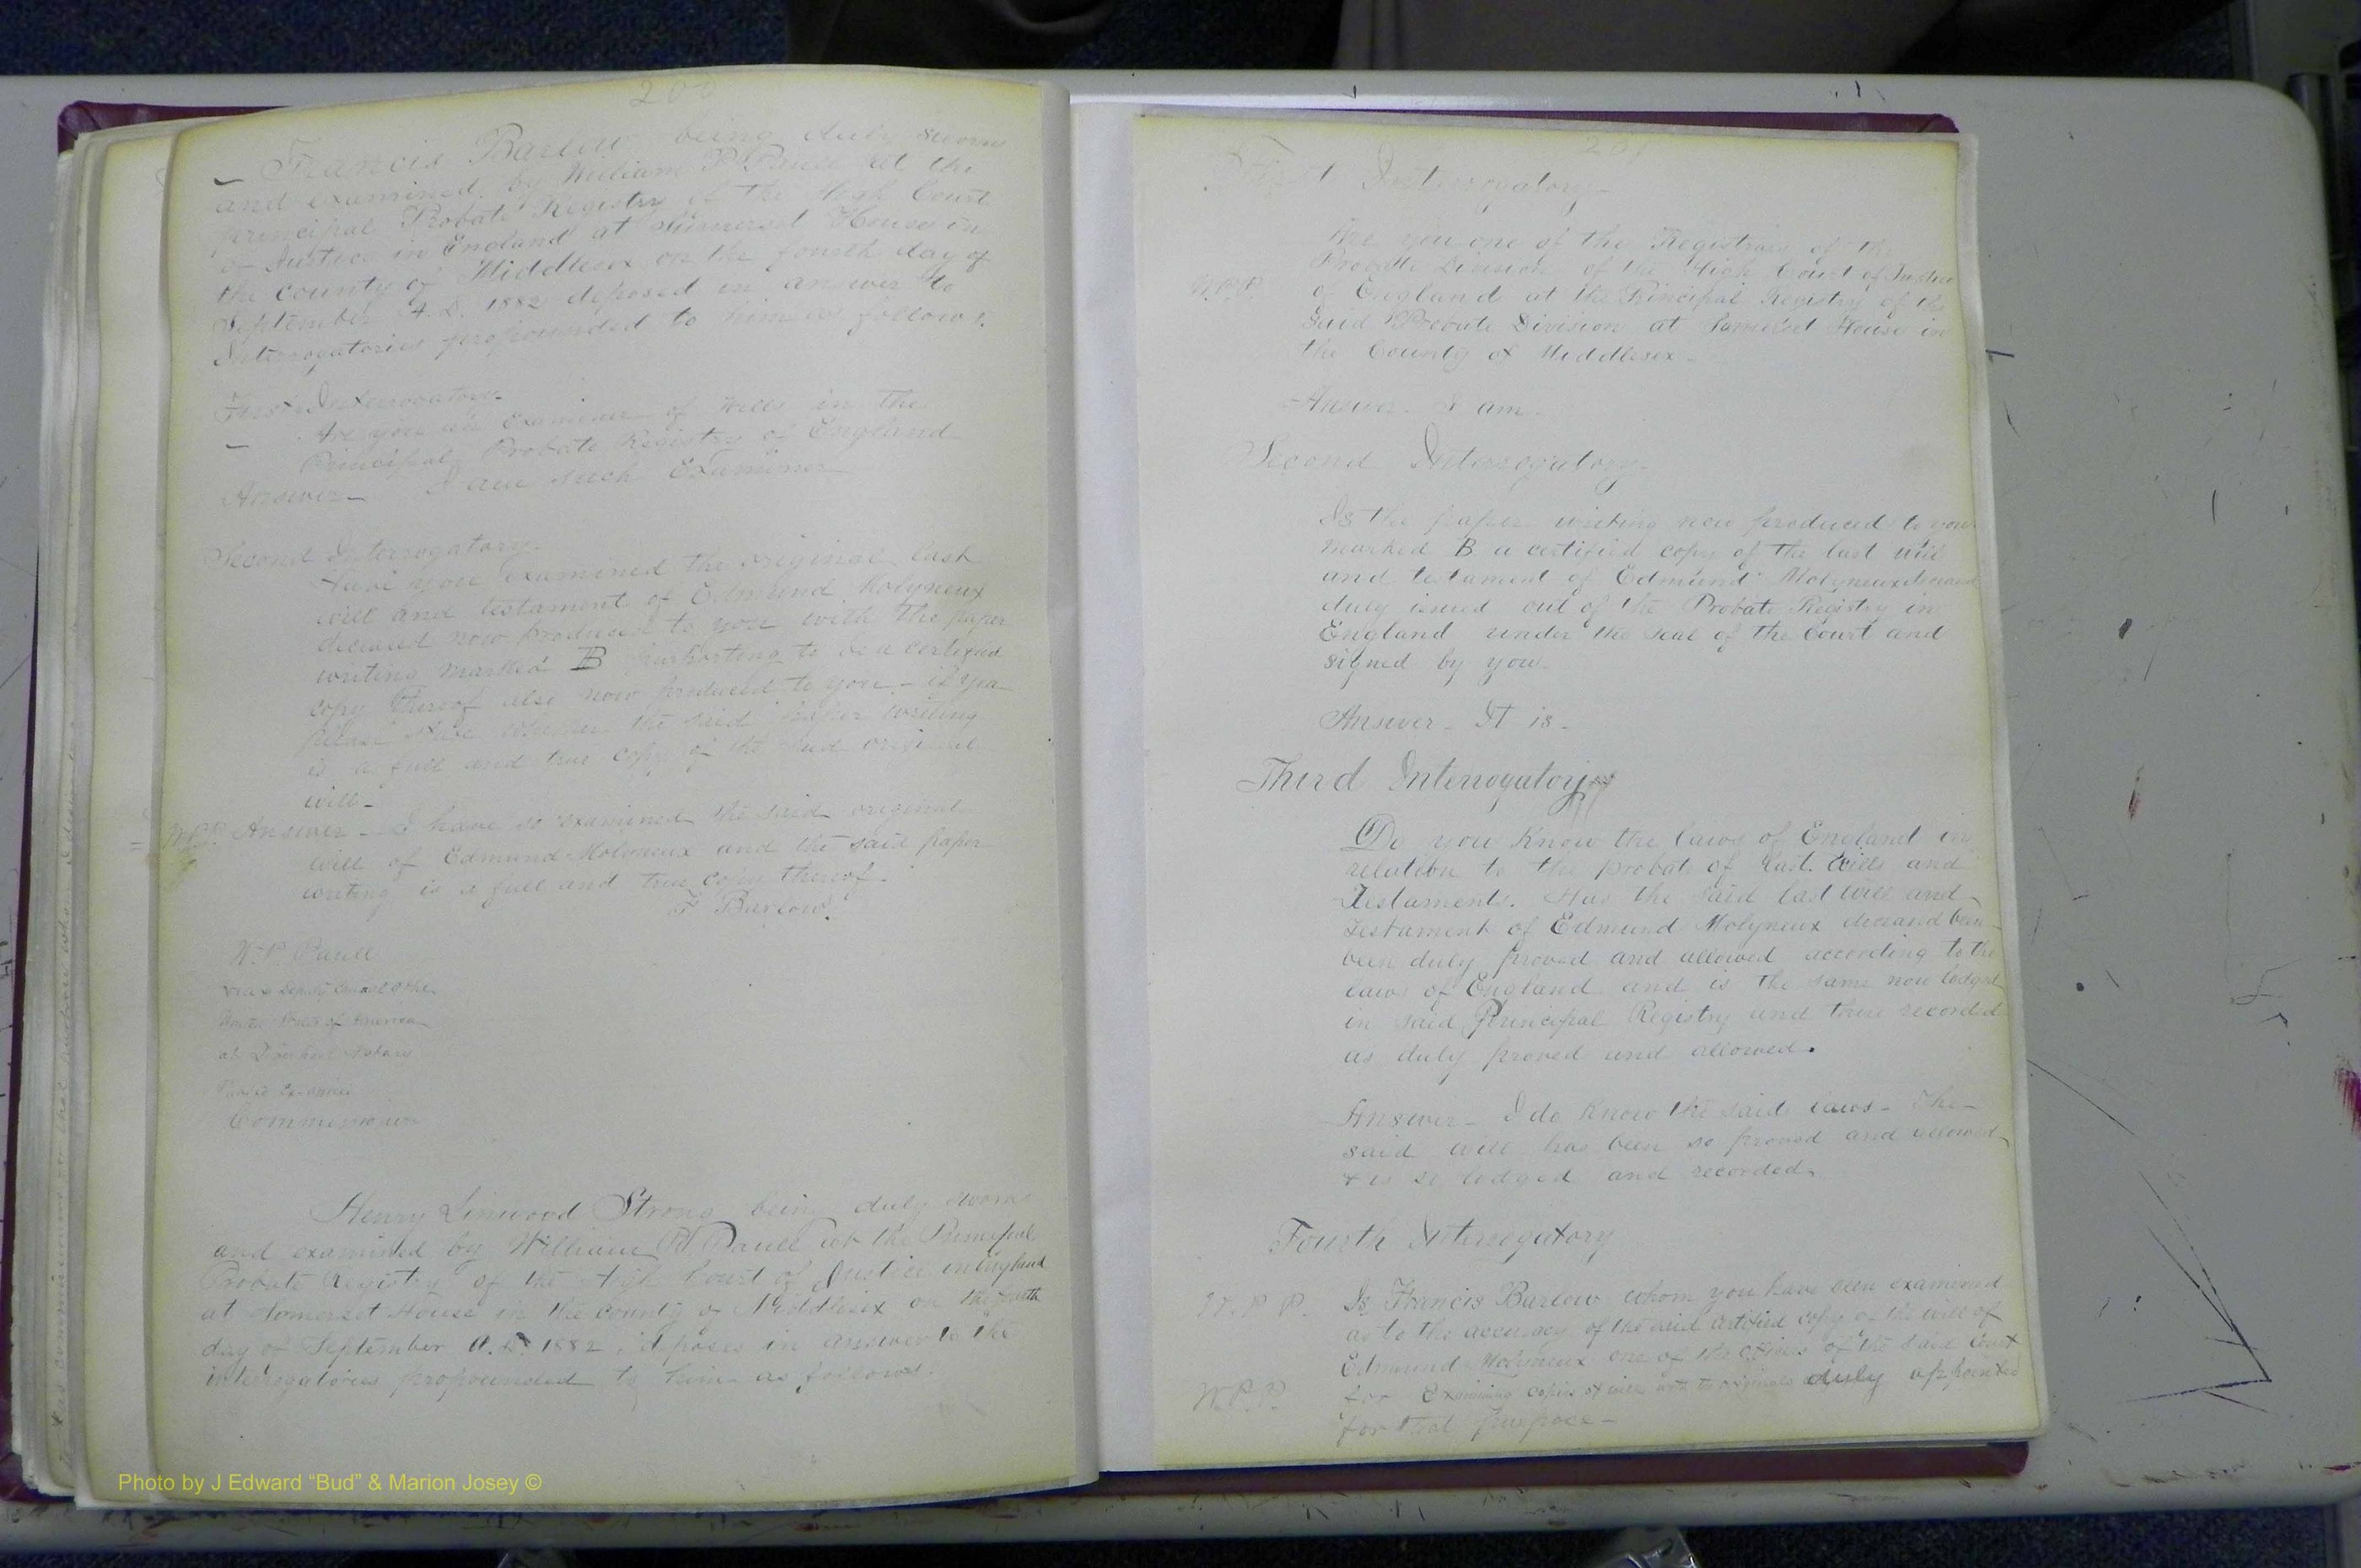 200
Francis Barlow being duly sworn
and examined by William P Paull at the
principal Probate Registry of the High Court
of Justice in England at Somerset House in
the county of Middlesex on the fourth day of
September A.D. 1882 deposed in answer to
Interrogatories propounded to him as follows.
First Interrogatory-
Are you an Examiner of Wills in the
Principal Probate Registry of England-
Answer- I am such Examiner
Second Interrogatory.
Have you examined the original last
will and testament of Edmund Molyneux
deceased now produced to you with the paper
writing marked B purporting to be a certified
copy thereof also now produced to you - if yea
please state whether the said paper writing
is a full and true copy of the said original
will-
W.P.P. Answer - I have so examined the said original
will of Edmund Molyneux and the said paper
writing is a full and true copy thereof.
F Barlow.
W.P. Paull
Vice & Deputy Consul of the
United States of America
at
Commissioner
Henry Linwood Strong being duly sworn
and examined by William P Paull at the Principal
Probate Registry of the High Court of Justice in England
at Somerset House in the county of Middlesex on the fourth
day of September A.D. 1882, deposes in answer to the
interrogatories propounded to him as follows.
201
First Interrogatory-
Are you one of the Registrars of the
Probate Division of the High Court of Justice
W.P.P. of England at the Principal Registry of the
said Probate Division at Somerset House in
the County of Middlesex-
Answer- I am-
Second Interrogatory-
Is the paper writing now produced to you
marked B a certified copy of the last will
and testament of Edmund Molyneux deceased
duly issued out of the Probate Registry in
England under the seal of the Court and
signed by you-
Answer- It is-
Third Interrogatory
Do you know the laws of England in
relation to the probate of last wills and
Testaments. Has the said last will and
Testament of Edmund Molyneux deceased been
been duly proved and allowed according to the
laws of England and is the same now lodged
in said Principal Registry and there recorded
as duly proved and allowed.
Answer- I do know the said laws- The-
said will has been so proved and allowed
& is so lodged and recorded
Fourth Interrogatory
W.P.P. Is Francis Barlow whom you have been examined
as to the accuracy of the said certified copy of the will of
Edmund Molyneux one of the officers of the said Court
W.P.P. for Examining copies of wills with the originals duly appointed
for that purpose-
Photo by J Edward “Bud” & Marion Josey ©